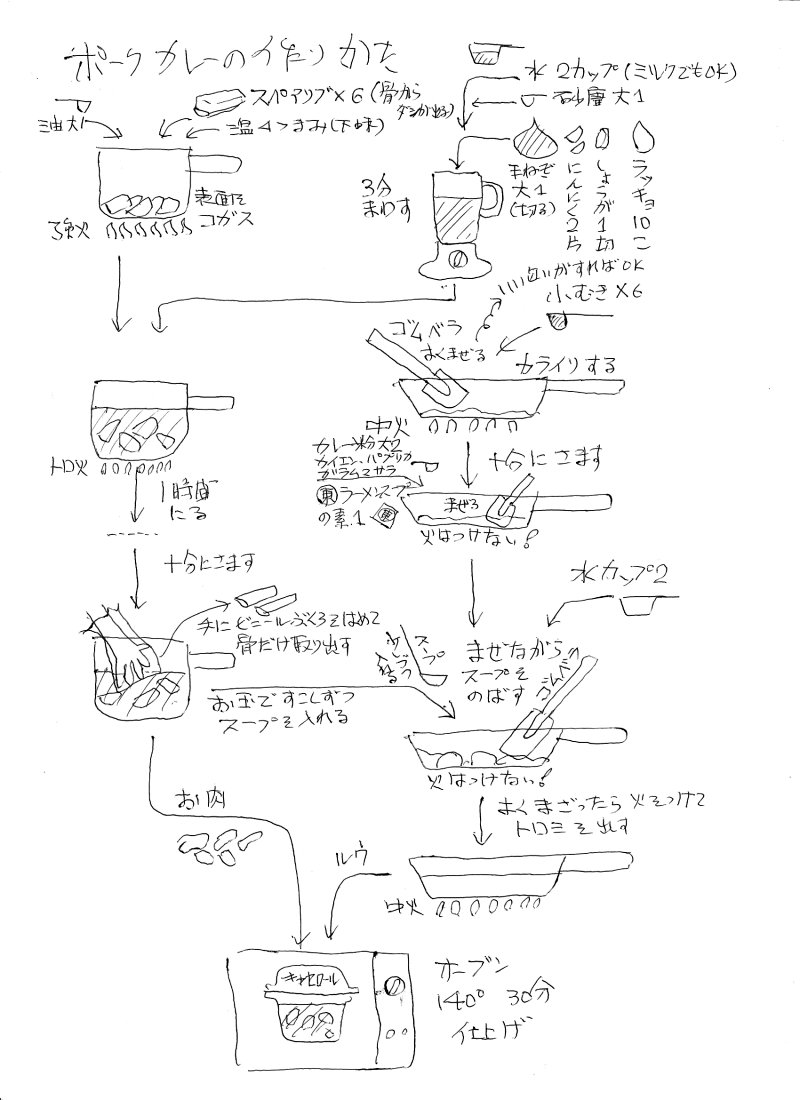 ポークカレーの作りかた
油大1
スペアリブ×6(骨から
ダシが出る)
塩4つまみ(下味)
表面を
コガス
強火
水 2カップ(ミルクでもOK)
砂糖 大1
3分
まわす
玉ねぎ
大1
(切る)
にんにく2片
しょうが1切
ラッチョ10こ
匂いがすればOK
小むぎ×6
ゴムベラ
よくまぜる
カライリする
中火
トロ火
1時間
にる
十分にさます
カレー粉大2
カイエン、パプリカ
ガラムマサラ
東ラーメンスープ
の素1
東
まぜる
火はつけない!
十分にさます
水カップ2
手にビニールぶくろをはめて
骨だけ取り出す
お玉ですこしずつ
スープを入れる
スープ
まぜながら
スープを
のばす
ゴムベラ
火はつけない!
よくまざったら 火をつけて
トロミを出す
お肉
ルウ
中火
キャセロール
オーブン
140° 30分
仕上げ